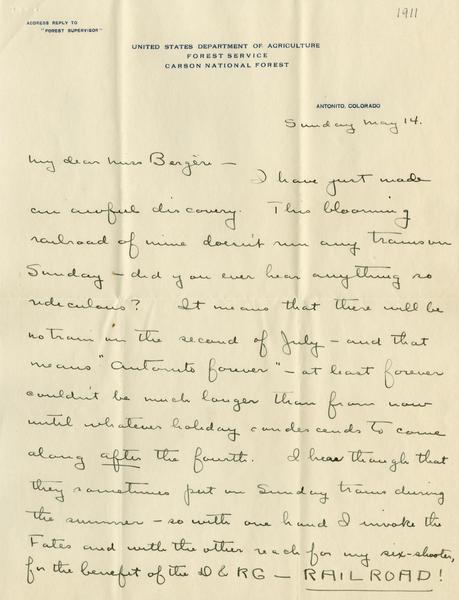 1911
ADDRESS REPLY TO
"FOREST SUPERVISOR"
UNITED STATES DEPARTMENT OF AGRICULTURE
FOREST SERVICE
CARSON NATIONAL FOREST
ANTONITO, COLORADO
Sunday May 14.
My dear Miss Bergère —
I have just made
an awful discovery. This blooming
railroad of mine doesn't run any trains on
Sunday — did you ever hear anything so
rediculous? It means that there will be
no train on the second of July — and that
means "Antonito forever" — at least forever
couldn't be much longer than from now
until whatever holiday condescends to come
along after the fourth. I hear though that
they sometimes put on Sunday trains during
the summer — so with one hand I invoke the
Fates and with the other reach for my six-shooter,
for the benefit of the D & RG — RAILROAD!